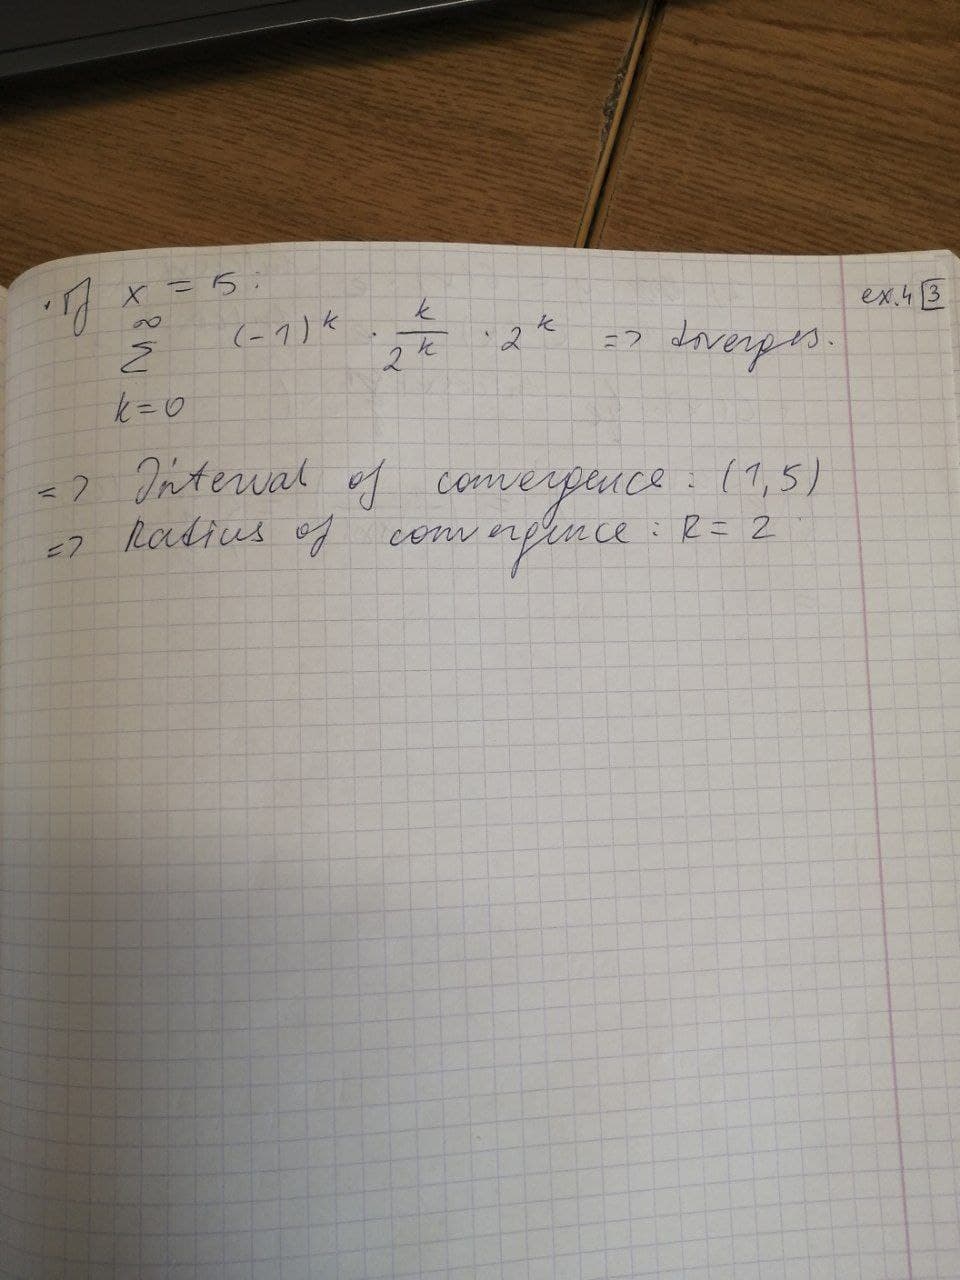 ex.4 3
· If x = 5:
∞
Σ (-1)^k · k/2^k · 2^k => diverges.
k=0
=> Interval of convergence: (1,5)
=> Radius of convergence: R = 2